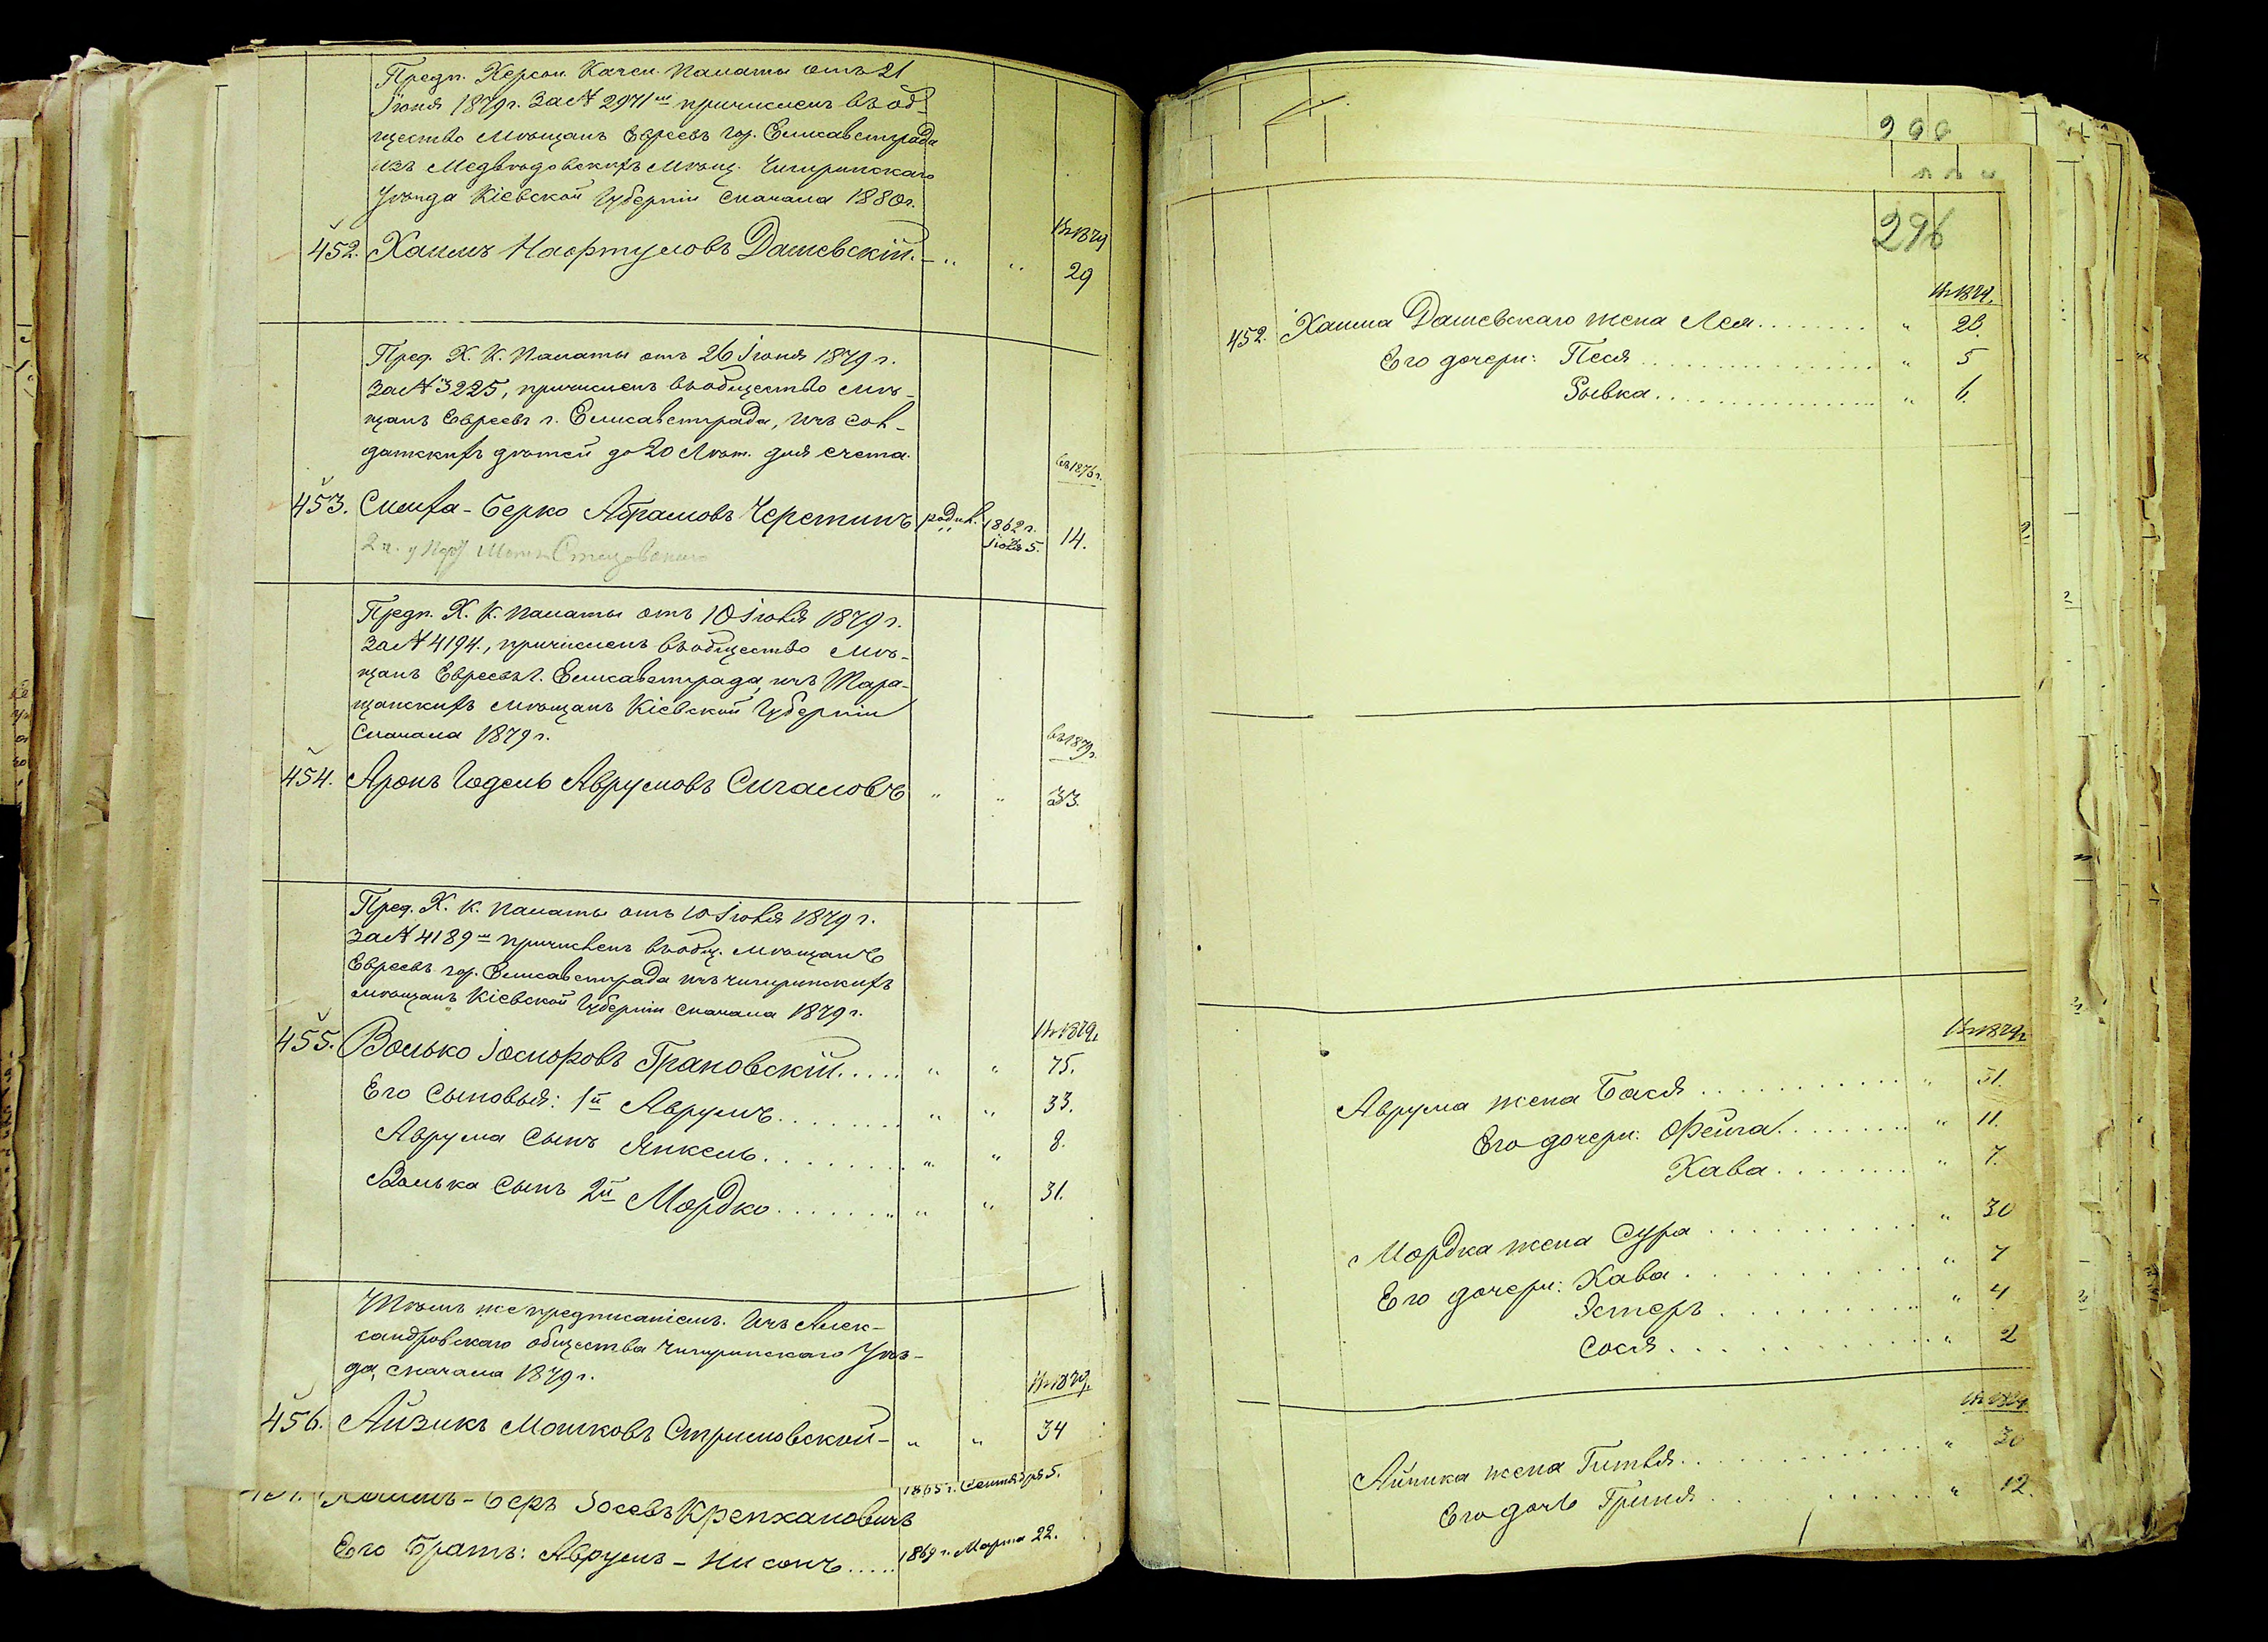 Предп. Херсон. Казен. Палаты отъ 21
Іюня 1879 г. за № 2971 м причисленъ въ об-
щество мѣщанъ Евреевъ гор. Елисаветграда
изъ Медвѣдовскихъ мѣщ. Чигиринскаго
Уѣзда Кіевской Губерніи сначала 1880 г.
Въ 1879
452. Хаимъ Нафтуловъ Дашевскій. - „ „ 29
Пред. Х. К. Палаты отъ 26 Іюня 1879 г.
за № 3225, причисленъ въ общество мѣ-
щанъ Евреевъ г. Елисаветграда, изъ сол-
датскихъ дѣтей до 20 Лѣт. для счета.
въ 1876 г.
453. Симха-Берко Абрамовъ Черетинъ родил. 1862 г. Іюля 5. 14.
Предп. Х. К. Палаты отъ 10 Іюля 1879 г.
за № 4194., причисленъ въ общество мѣ-
щанъ Евреевъ г. Елисаветграда изъ Тара-
щанскихъ мѣщанъ Кіевской Губерніи
сначала 1879 г.
въ 1879 г.
454. Аронъ Годель Аврумовъ Сигаловъ „ „ 33.
Пред. Х. К. Палаты отъ 10 Іюля 1879 г.
за № 4189 м причисленъ въ общ. мѣщанъ
Евреевъ гор. Елисаветграда изъ чигиринскихъ
мѣщанъ Кіевской Губерніи сначала 1879 г.
Въ 1879 г.
455. Волько Іосифовъ Грановскій..... „ „ 75.
Его сыновья: 1й Аврумъ........ „ „ 33.
Аврума сынъ Янкель........ „ „ 8.
Волька сынъ 2й Мордко........ „ „ 31.
Тѣмъ же предписаніемъ. Изъ Алек-
сандровскаго общества Чигиринскаго Уѣз-
да, сначала 1879 г.
Въ 1879 г.
456. Айзикъ Мошковъ Стримовской - „ „ 34
1865 г. Сентября 5.
Беръ Зосевъ Крепхановичъ
Его братъ: Аврумъ-Нисонъ..... 1869 г. Марта 22.
296
Въ 1879.
452. Хаима Дашевскаго жена Лея........ „ 28.
Его дочери: Песя............ „ 5
Рывка............ „ 6.
Въ 1879 г.
Аврума жена Бася............ „ 31.
Его дочери: Фейга........ „ 11.
Хава........ „ 7.
Мордка жена Сура............ „ 30
Его дочери: Хава............ „ 7
Эстеръ............ „ 4
Сося............ „ 2
Въ 1879
Айзика жена Гитля............ „ 30
Его дочь Гриня............ „ 12.